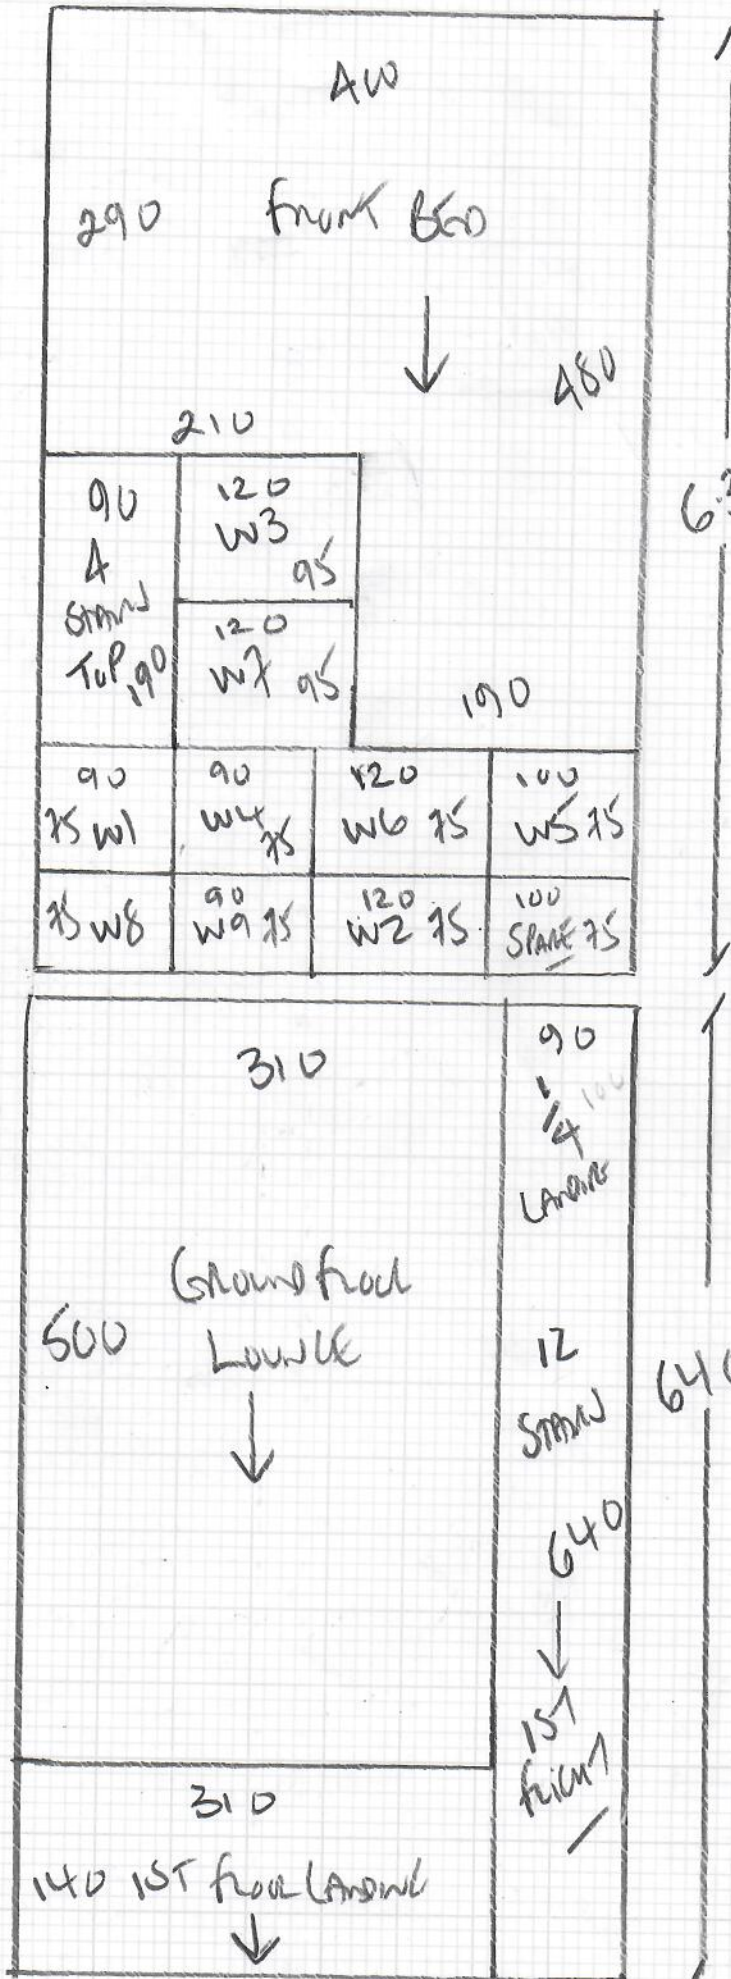 400
290 FRONT BED
480
210
90
120
W3
95
4
STAIRS
TOP 190
120
W7 95
190
63
90
75 W1
90
W4
75
120
W6 75
100
W5 75
75 W8
90
W9 75
120
W2 75
100
SPARE 75
310
90
1/4 100
LANDING
GROUND FLOOR
500 LOUNGE
12
STAIRS
640
640
1ST
FLIGHT
310
140 1ST FLOOR LANDING